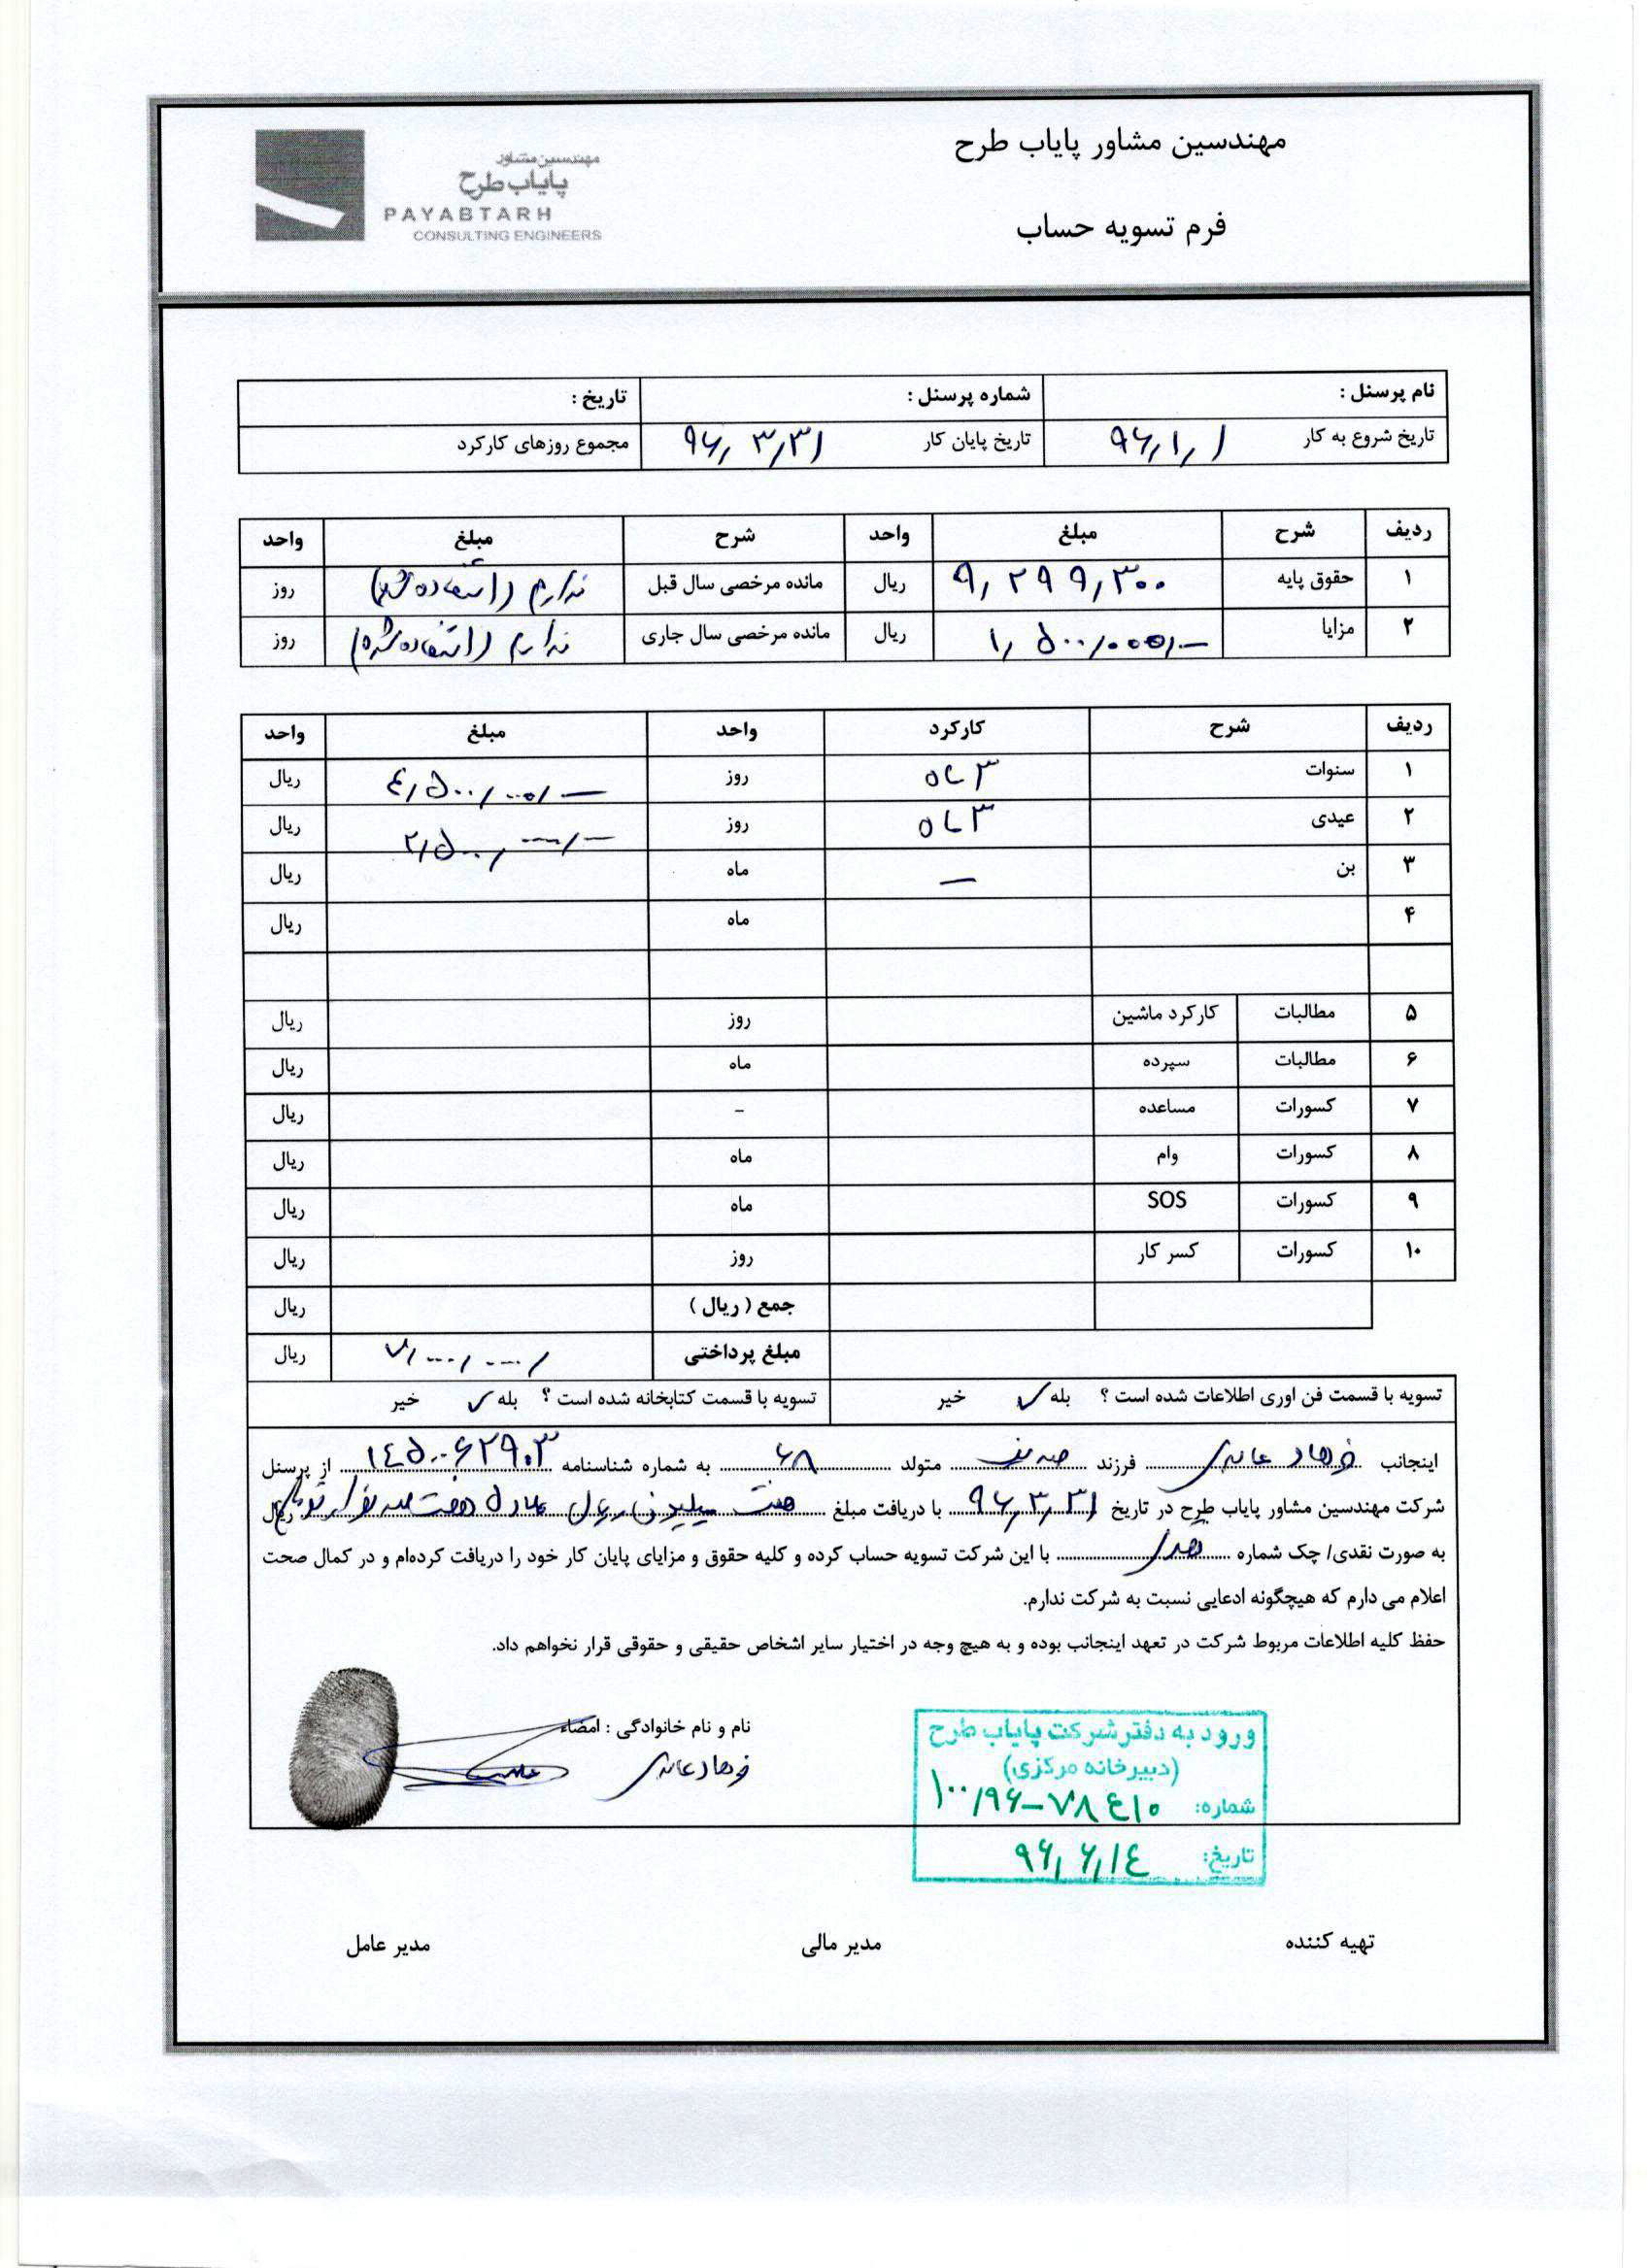 مهندسین مشاور پایاب طرح
فرم تسویه حساب
مهندسین مشاور
پایاب طرح
PAYABTARH
CONSULTING ENGINEERS
نام پرسنل : شماره پرسنل : تاریخ :
تاریخ شروع به کار ۹۶/۱/۱ تاریخ پایان کار ۹۶/۳/۳۱ مجموع روزهای کارکرد
ردیف شرح مبلغ واحد شرح مبلغ واحد
۱ حقوق پایه ۹,۲۹۹,۳۰۰ ریال مانده مرخصی سال قبل ندارم (استفاده شده) روز
۲ مزایا ۱,۵۰۰/۰۰۰/- ریال مانده مرخصی سال جاری ندارم (استفاده شده) روز
ردیف شرح کارکرد واحد مبلغ واحد
۱ سنوات ۳ ماه روز ۴,۵۰۰/۰۰۰/- ریال
۲ عیدی ۳ ماه روز ۲,۵۰۰/۰۰۰/- ریال
۳ بن — ماه ریال
۴ ماه ریال
۵ مطالبات کارکرد ماشین روز ریال
۶ مطالبات سپرده ماه ریال
۷ کسورات مساعده - ریال
۸ کسورات وام ماه ریال
۹ کسورات SOS ماه ریال
۱۰ کسورات کسر کار روز ریال
جمع ( ریال ) ریال
مبلغ پرداختی ۷/۰۰۰/۰۰۰/ ریال
تسویه با قسمت فن اوری اطلاعات شده است ؟ بله ✓ خیر تسویه با قسمت کتابخانه شده است ؟ بله ✓ خیر
اینجانب فرهاد عابدی فرزند متولد ۶۸ به شماره شناسنامه ۱۴۵۰۰۶۲۹۰۳ از پرسنل
شرکت مهندسین مشاور پایاب طرح در تاریخ ۹۶/۳/۳۱ با دریافت مبلغ هفت میلیون ریال معادل هفت صد هزار تومان ریال
به صورت نقدی/ چک شماره با این شرکت تسویه حساب کرده و کلیه حقوق و مزایای پایان کار خود را دریافت کرده‌ام و در کمال صحت
اعلام می دارم که هیچگونه ادعایی نسبت به شرکت ندارم.
حفظ کلیه اطلاعات مربوط شرکت در تعهد اینجانب بوده و به هیچ وجه در اختیار سایر اشخاص حقیقی و حقوقی قرار نخواهم داد.
نام و نام خانوادگی : امضاء
فرهاد عابدی
ورود به دفتر شرکت پایاب طرح
(دبیرخانه مرکزی)
شماره: ۱۰۰/۹۶-۷۸۴۱۵
تاریخ: ۹۶/۶/۱۴
تهیه کننده مدیر مالی مدیر عامل